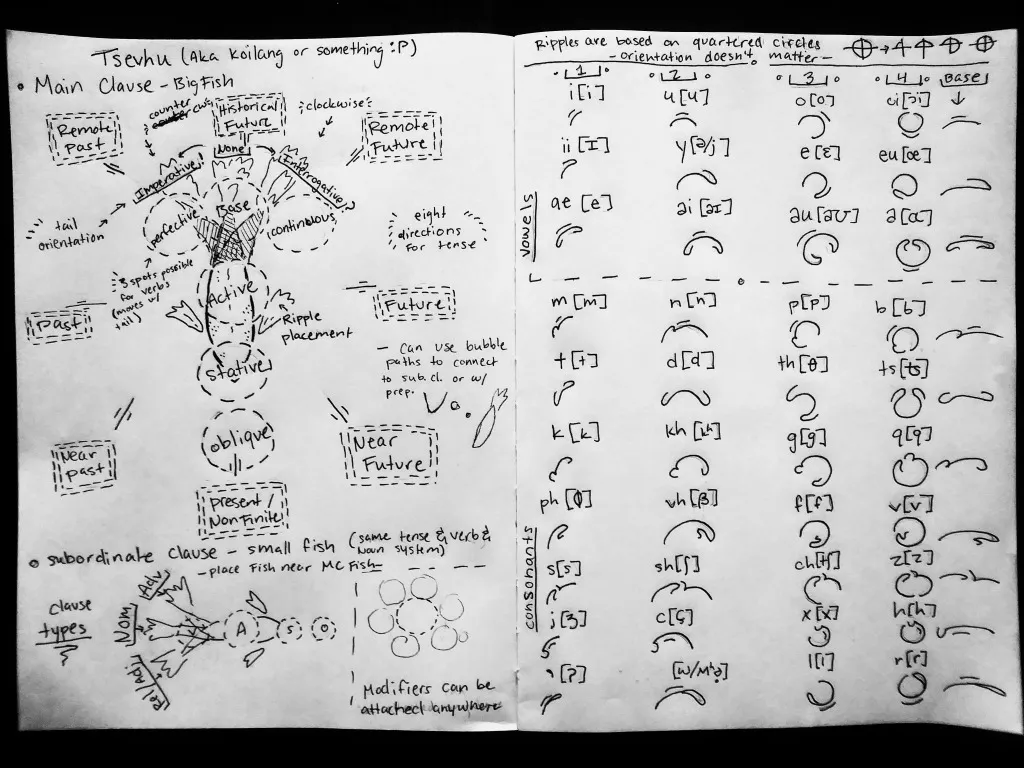 Tsevhu (Aka Koilang or something :P)
• Main Clause - Big Fish
Remote Past
counter cw
Historical Future
clockwise
Remote Future
Imperative
None
Interrogative
tail orientation
perfective
Base
continuous
eight directions for tense
3 spots possible for verbs (moves w/ tail)
Active
Past
Future
Ripple placement
stative
- Can use bubble paths to connect to sub. cl. or w/ prep.
oblique
Near past
Near Future
present / NonFinite
• subordinate clause - small fish (same tense & verb & Noun system)
- place Fish near MC Fish
clause types
Adv.
Nom
Rel/Adj.
A
S
O
Modifiers can be attached anywhere
Ripples are based on quartered circles
- orientation doesn't matter -
1 2 3 4 Base
vowels
i [i] u [u] o [o] oi [ɔi]
ii [ɪ] y [ə/j] e [ɛ] eu [œ]
ae [e] ai [aɪ] au [aʊ] a [ɑ]
consonants
m [m] n [n] p [p] b [b]
t [t] d [d] th [θ] ts [ts]
k [k] kh g [g] q [q]
ph [ɸ] vh [β] f [f] v [v]
s [s] sh [ʃ] ch [tʃ] z [z]
j [ʒ] c [ç] x [x] h [h]
' [ʔ] l [l] r [r]